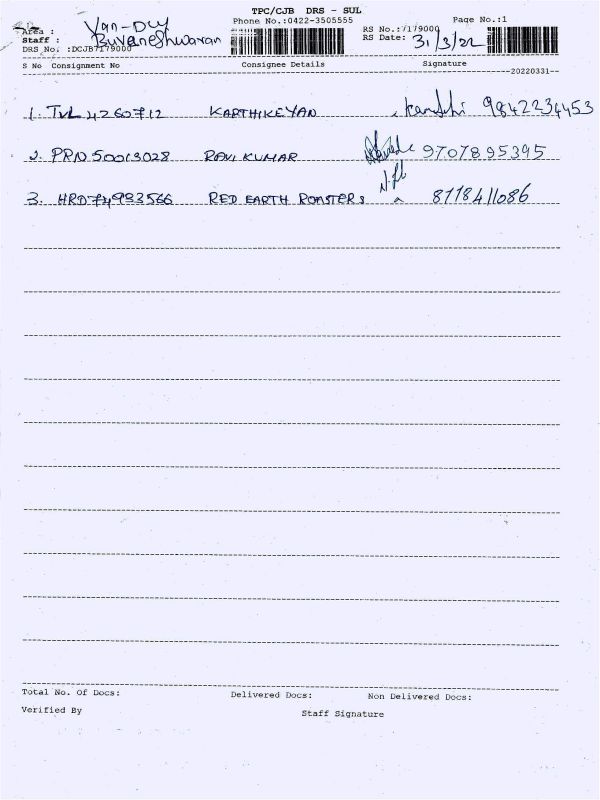 TPC/CJB DRS - SUL
Phone No.:0422-3505555 Page No.:1
Area : Van-Dly
Staff : Buvaneshwaran
RS No.:7179000
RS Date: 31/3/22
DRS No. :DCJB7179000
S No Consignment No Consignee Details Signature
20220331
1. TVL4260712 KARTHIKEYAN 9842234453
2. PRN50013028 RAVI KUMAR 9707895395
3. HRD74993566 RED EARTH ROASTERS 8778411086
Total No. Of Docs: Delivered Docs: Non Delivered Docs:
Verified By Staff Signature